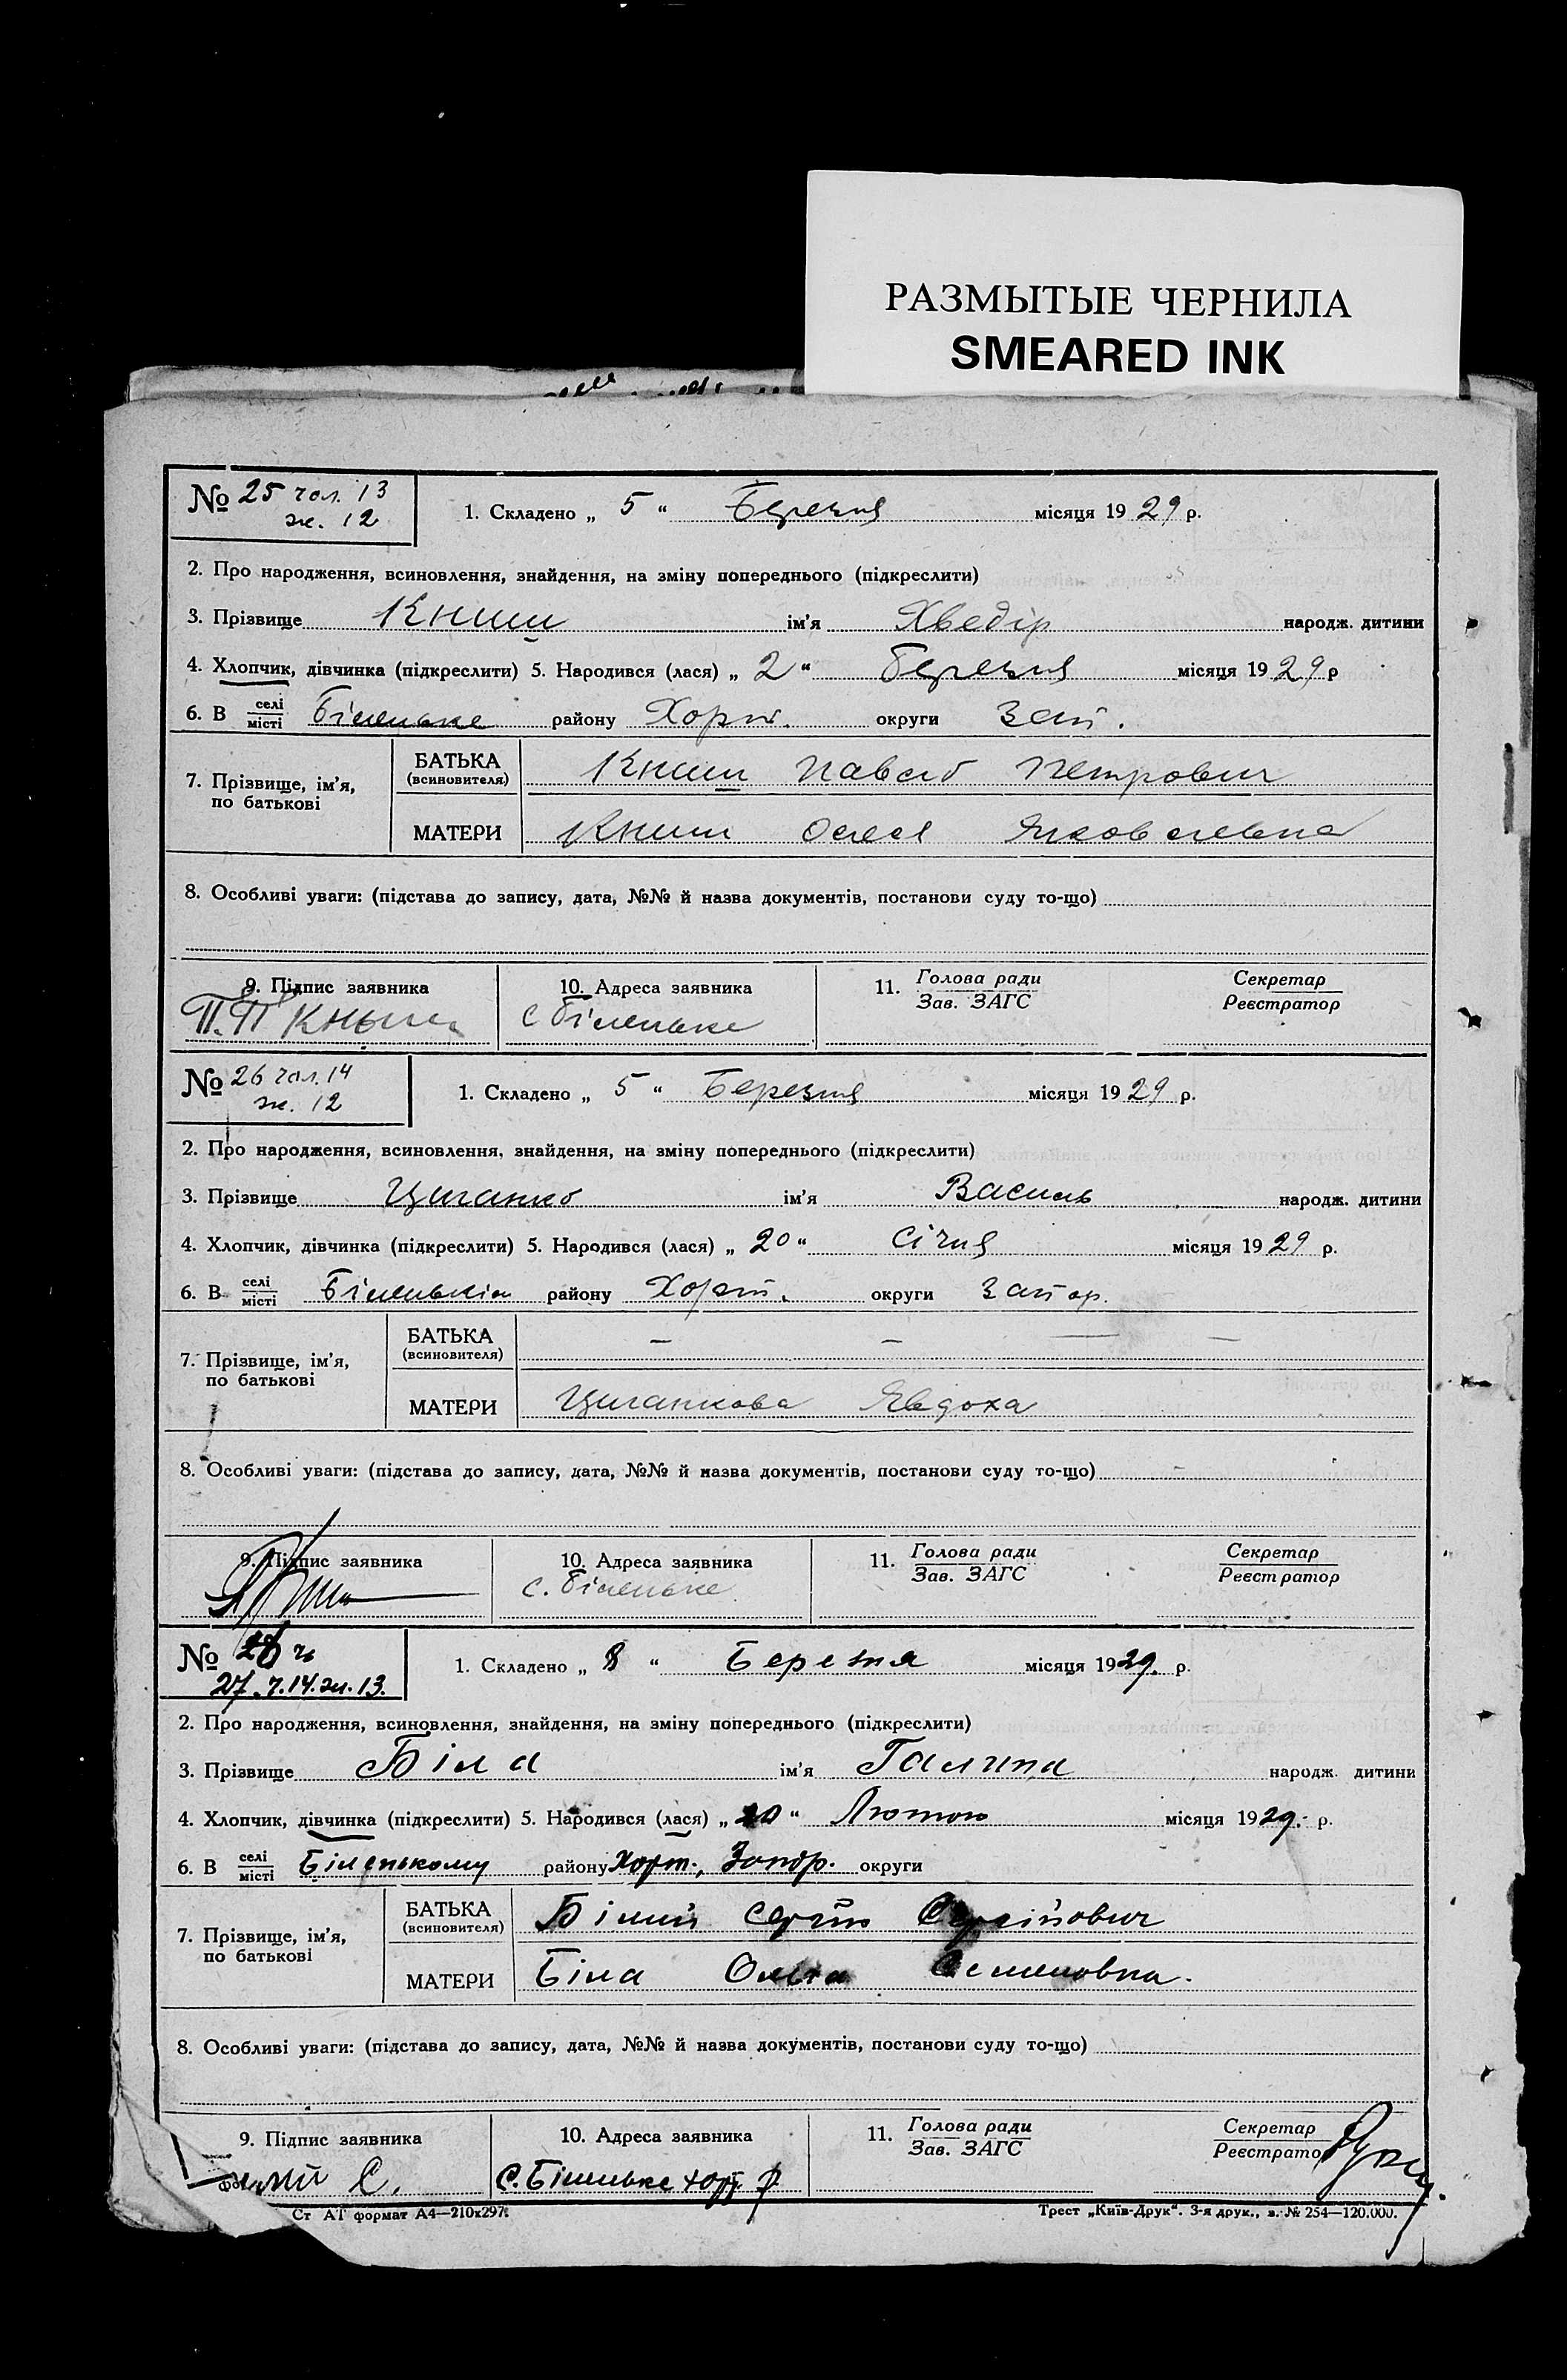 РАЗМЫТЫЕ ЧЕРНИЛА
SMEARED INK
№ 25 чол. 13
ж. 12
1. Складено „ 5 “ Березня місяця 1929 р.
2. Про народження, всиновлення, знайдення, на зміну попереднього (підкреслити)
3. Прізвище Книш ім'я Хведір народж. дитини
4. Хлопчик, дівчинка (підкреслити) 5. Народився (лася) „ 2 “ березня місяця 1929 р
6. В селі/місті Біленьке району Хорт. округи Зап.
7. Прізвище, ім'я, по батькові
БАТЬКА (всиновителя) Книш Павло Петрович
МАТЕРИ Книш Олекс Яковлевна
8. Особливі уваги: (підстава до запису, дата, №№ й назва документів, постанови суду то-що)
9. Підпис заявника 10. Адреса заявника 11. Голова ради / Зав. ЗАГС Секретар / Реєстратор
П.П Кныш с Біленьке
№ 26 чол. 14
ж. 12
1. Складено „ 5 “ Березня місяця 1929 р.
2. Про народження, всиновлення, знайдення, на зміну попереднього (підкреслити)
3. Прізвище Циганко ім'я Василь народж. дитини
4. Хлопчик, дівчинка (підкреслити) 5. Народився (лася) „ 20 “ Січня місяця 1929 р.
6. В селі/місті Біленькім району Хорт. округи Запор.
7. Прізвище, ім'я, по батькові
БАТЬКА (всиновителя) — — — —
МАТЕРИ Циганкова Явдоха
8. Особливі уваги: (підстава до запису, дата, №№ й назва документів, постанови суду то-що) –
9. Підпис заявника 10. Адреса заявника 11. Голова ради / Зав. ЗАГС Секретар / Реєстратор
с. Біленьке
№
27. ч. 14. ж. 13.
1. Складено „ 8 “ Березня місяця 1929. р.
2. Про народження, всиновлення, знайдення, на зміну попереднього (підкреслити)
3. Прізвище Біла ім'я Галина народж. дитини
4. Хлопчик, дівчинка (підкреслити) 5. Народився (лася) „ 20 “ Лютого місяця 1929. р.
6. В селі/місті Біленькому району Хорт., Запор. округи
7. Прізвище, ім'я, по батькові
БАТЬКА (всиновителя) Білий Сергій Сергійович
МАТЕРИ Біла Ольга Семеновна.
8. Особливі уваги: (підстава до запису, дата, №№ й назва документів, постанови суду то-що)
9. Підпис заявника 10. Адреса заявника 11. Голова ради / Зав. ЗАГС Секретар / Реєстратор
С. с. Біленьке хорт. р.
Ст АТ формат А4—210х297
Трест „Київ-Друк“. 3-я друк., з. № 254—120.000.